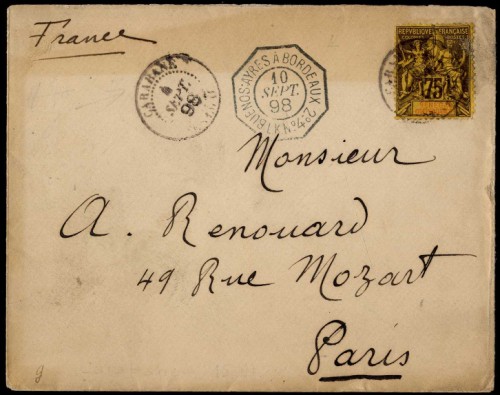 France
CARABANE
SEPT.
98
BUENOS-AYRES A BORDEAUX 2º
10
SEPT.
98
REPUBLIQUE FRANÇAISE
75
Monsieur
A. Renouard
49 Rue Mozart
Paris